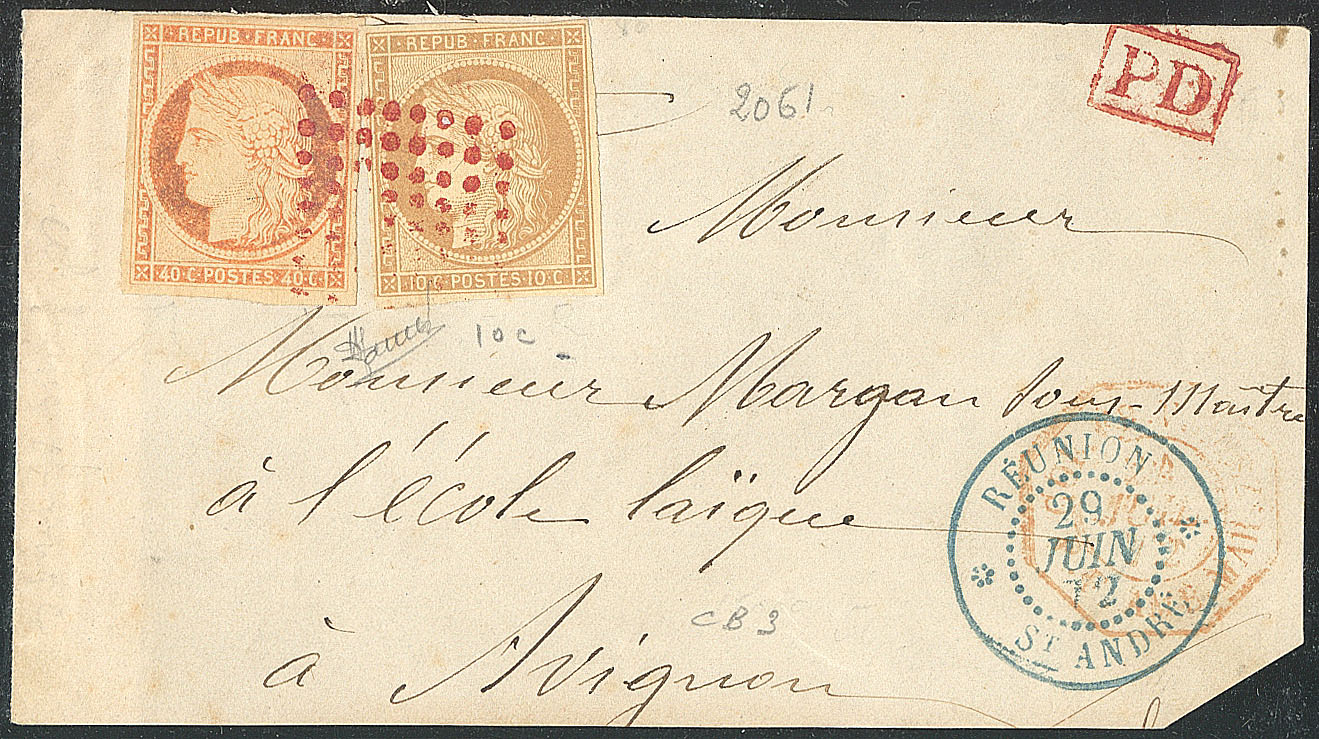 REPUB·FRANC
REPUB·FRANC
40·C·POSTES·40·C
10·C·POSTES·10·C
PD
2061
Monsieur
10c
Monsieur Margan Sous-Maître
à l'école laïque
à Avignon
CB3
RÉUNION
29
JUIN
72
ST ANDRÉ